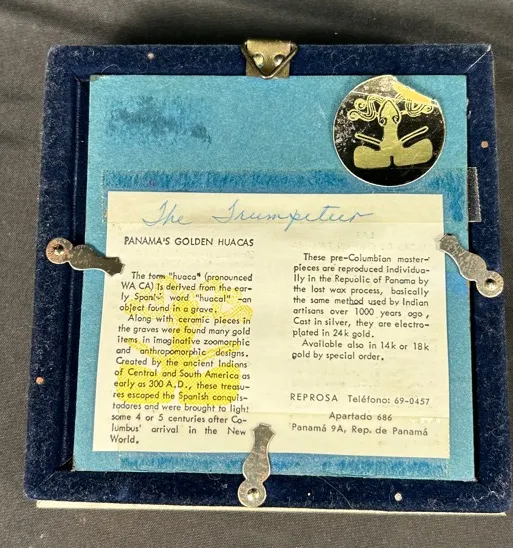 The Trumpeteur
PANAMA'S GOLDEN HUACAS
The tem "huaca" (pronounced
WA CA) is derived from the ear-
ly Spanish word "huacal" -an
object found in a grave.
Along with ceramic pieces in
the graves were found many gold
items in imaginative zoomorphic
and anthropomorphic designs.
Created by the ancient Indians
of Central and South America as
early as 300 A.D., these treasu-
res escaped the Spanish conquis-
tadores and were brought to light
some 4 or 5 centuries after Co-
lumbus' arrival in the New
World.
These pre-Columbian master-
pieces are reproduced individua-
lly in the Republic of Panama by
the lost wax process, basically
the same method used by Indian
artisans over 1000 years ago,
Cast in silver, they are electro-
plated in 24k gold.
Available also in 14k or 18k
gold by special order.
REPROSA Teléfono: 69-0457
Apartado 686
Panamá 9A, Rep. de Panamá